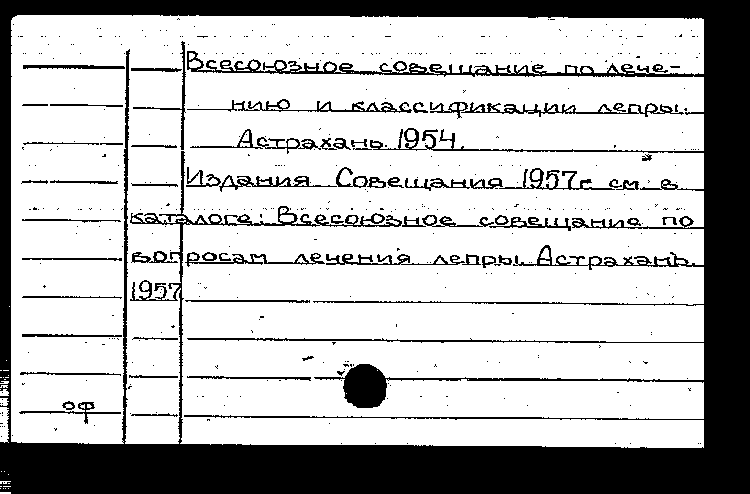 Всесоюзное совещание по лече-
нию и классификации лепры.
Астрахань. 1954.
Издания Совещания 1957г см. в
каталоге: Всесоюзное совещание по
вопросам лечения лепры. Астрахань.
1957
оф